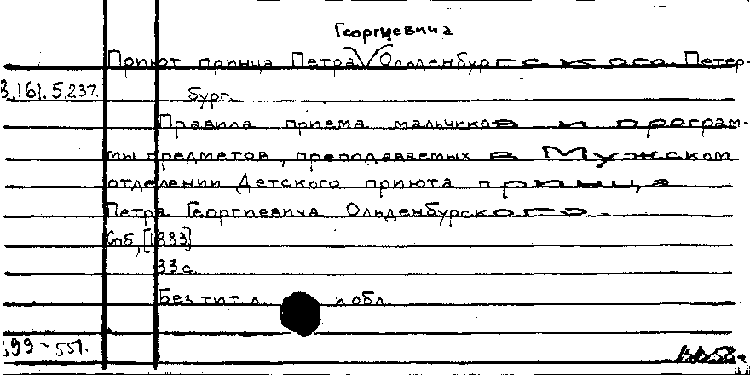 Георгиевича
Приют принца Петра Ольденбургского. Петер-
3.161.5.237.
бург.
Правила приема мальчиков и програм-
мы предметов, преподаваемых в Мужском
отделении Детского приюта принца
Петра Георгиевича Ольденбургского.
Спб, [1883]
33 с.
Без тит. л. и обл.
99-551.